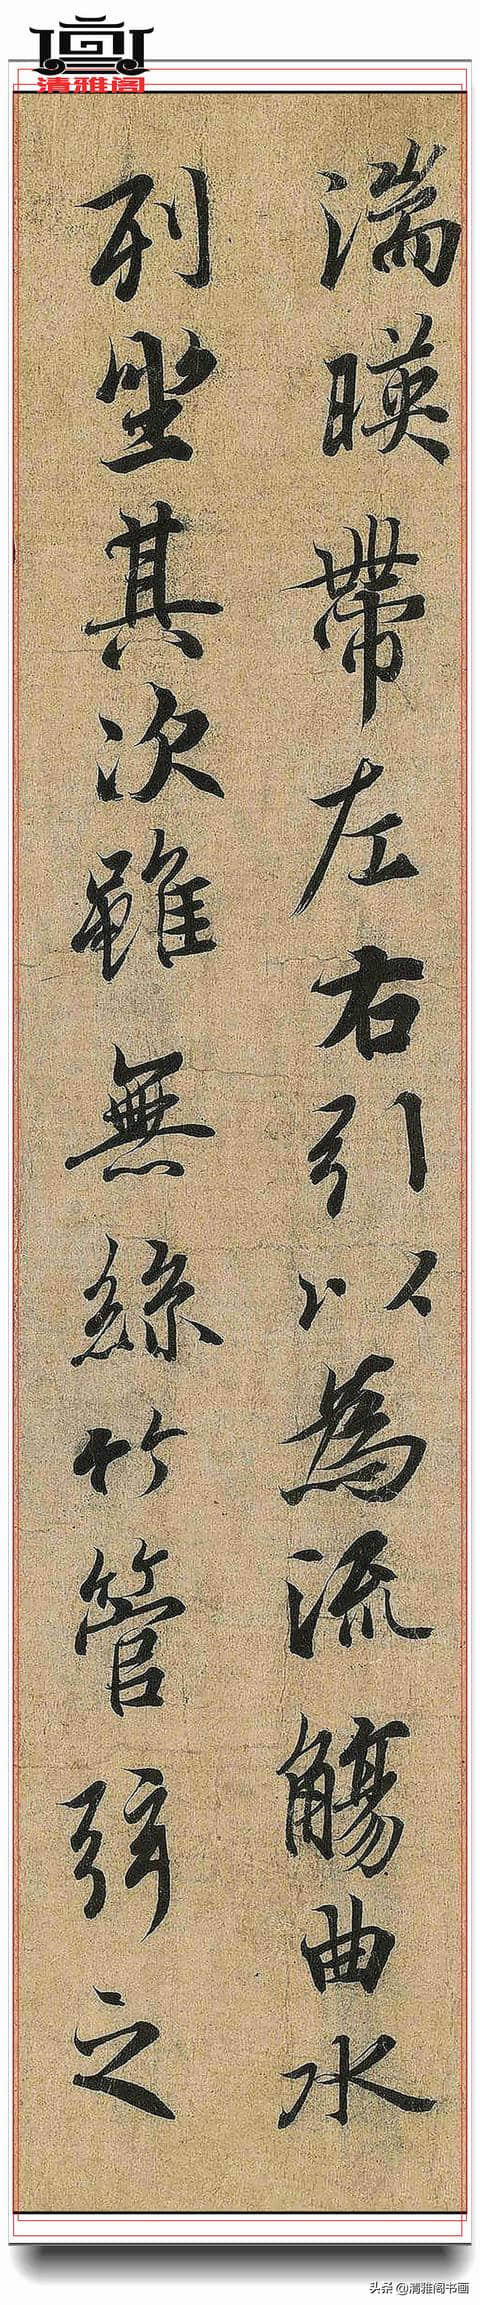 清雅阁
湍暎帶左右引以為流觴曲水
列坐其次雖無絲竹管弦之
头条@清雅阁书画